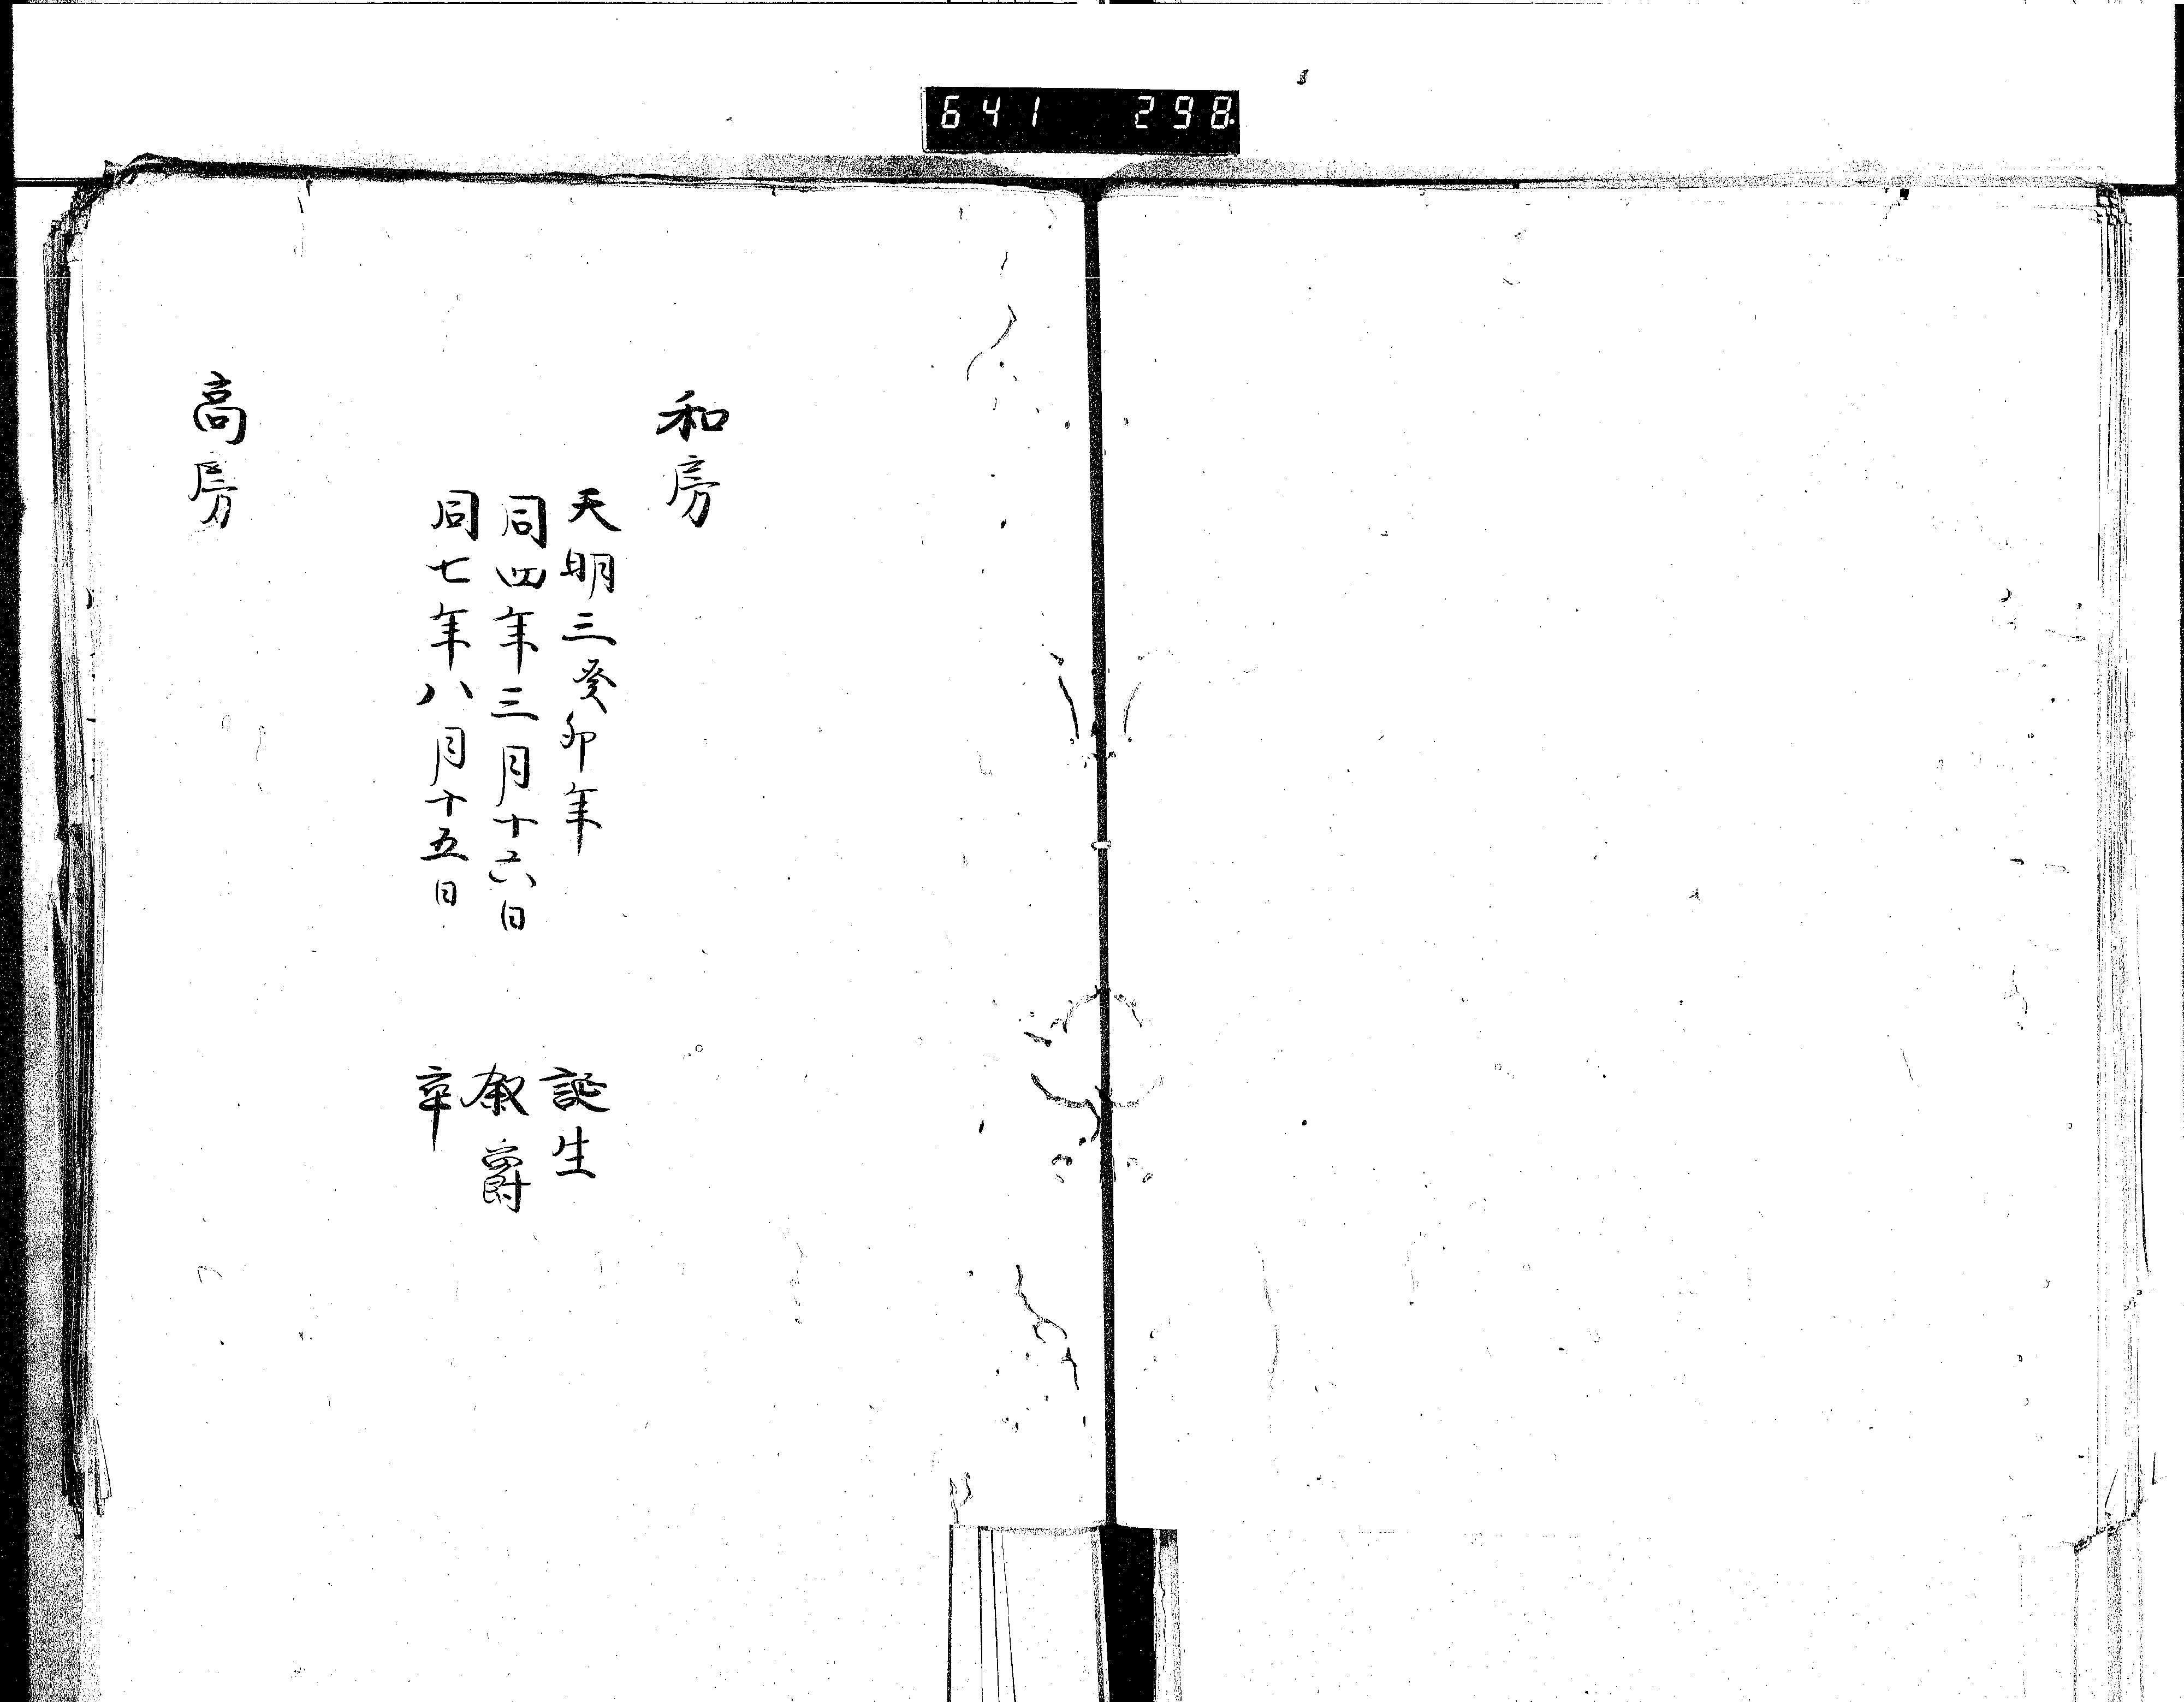 641 298
和房
天明三癸卯年 誕生
同四年三月十六日 叙爵
同七年八月十五日 卒
高房